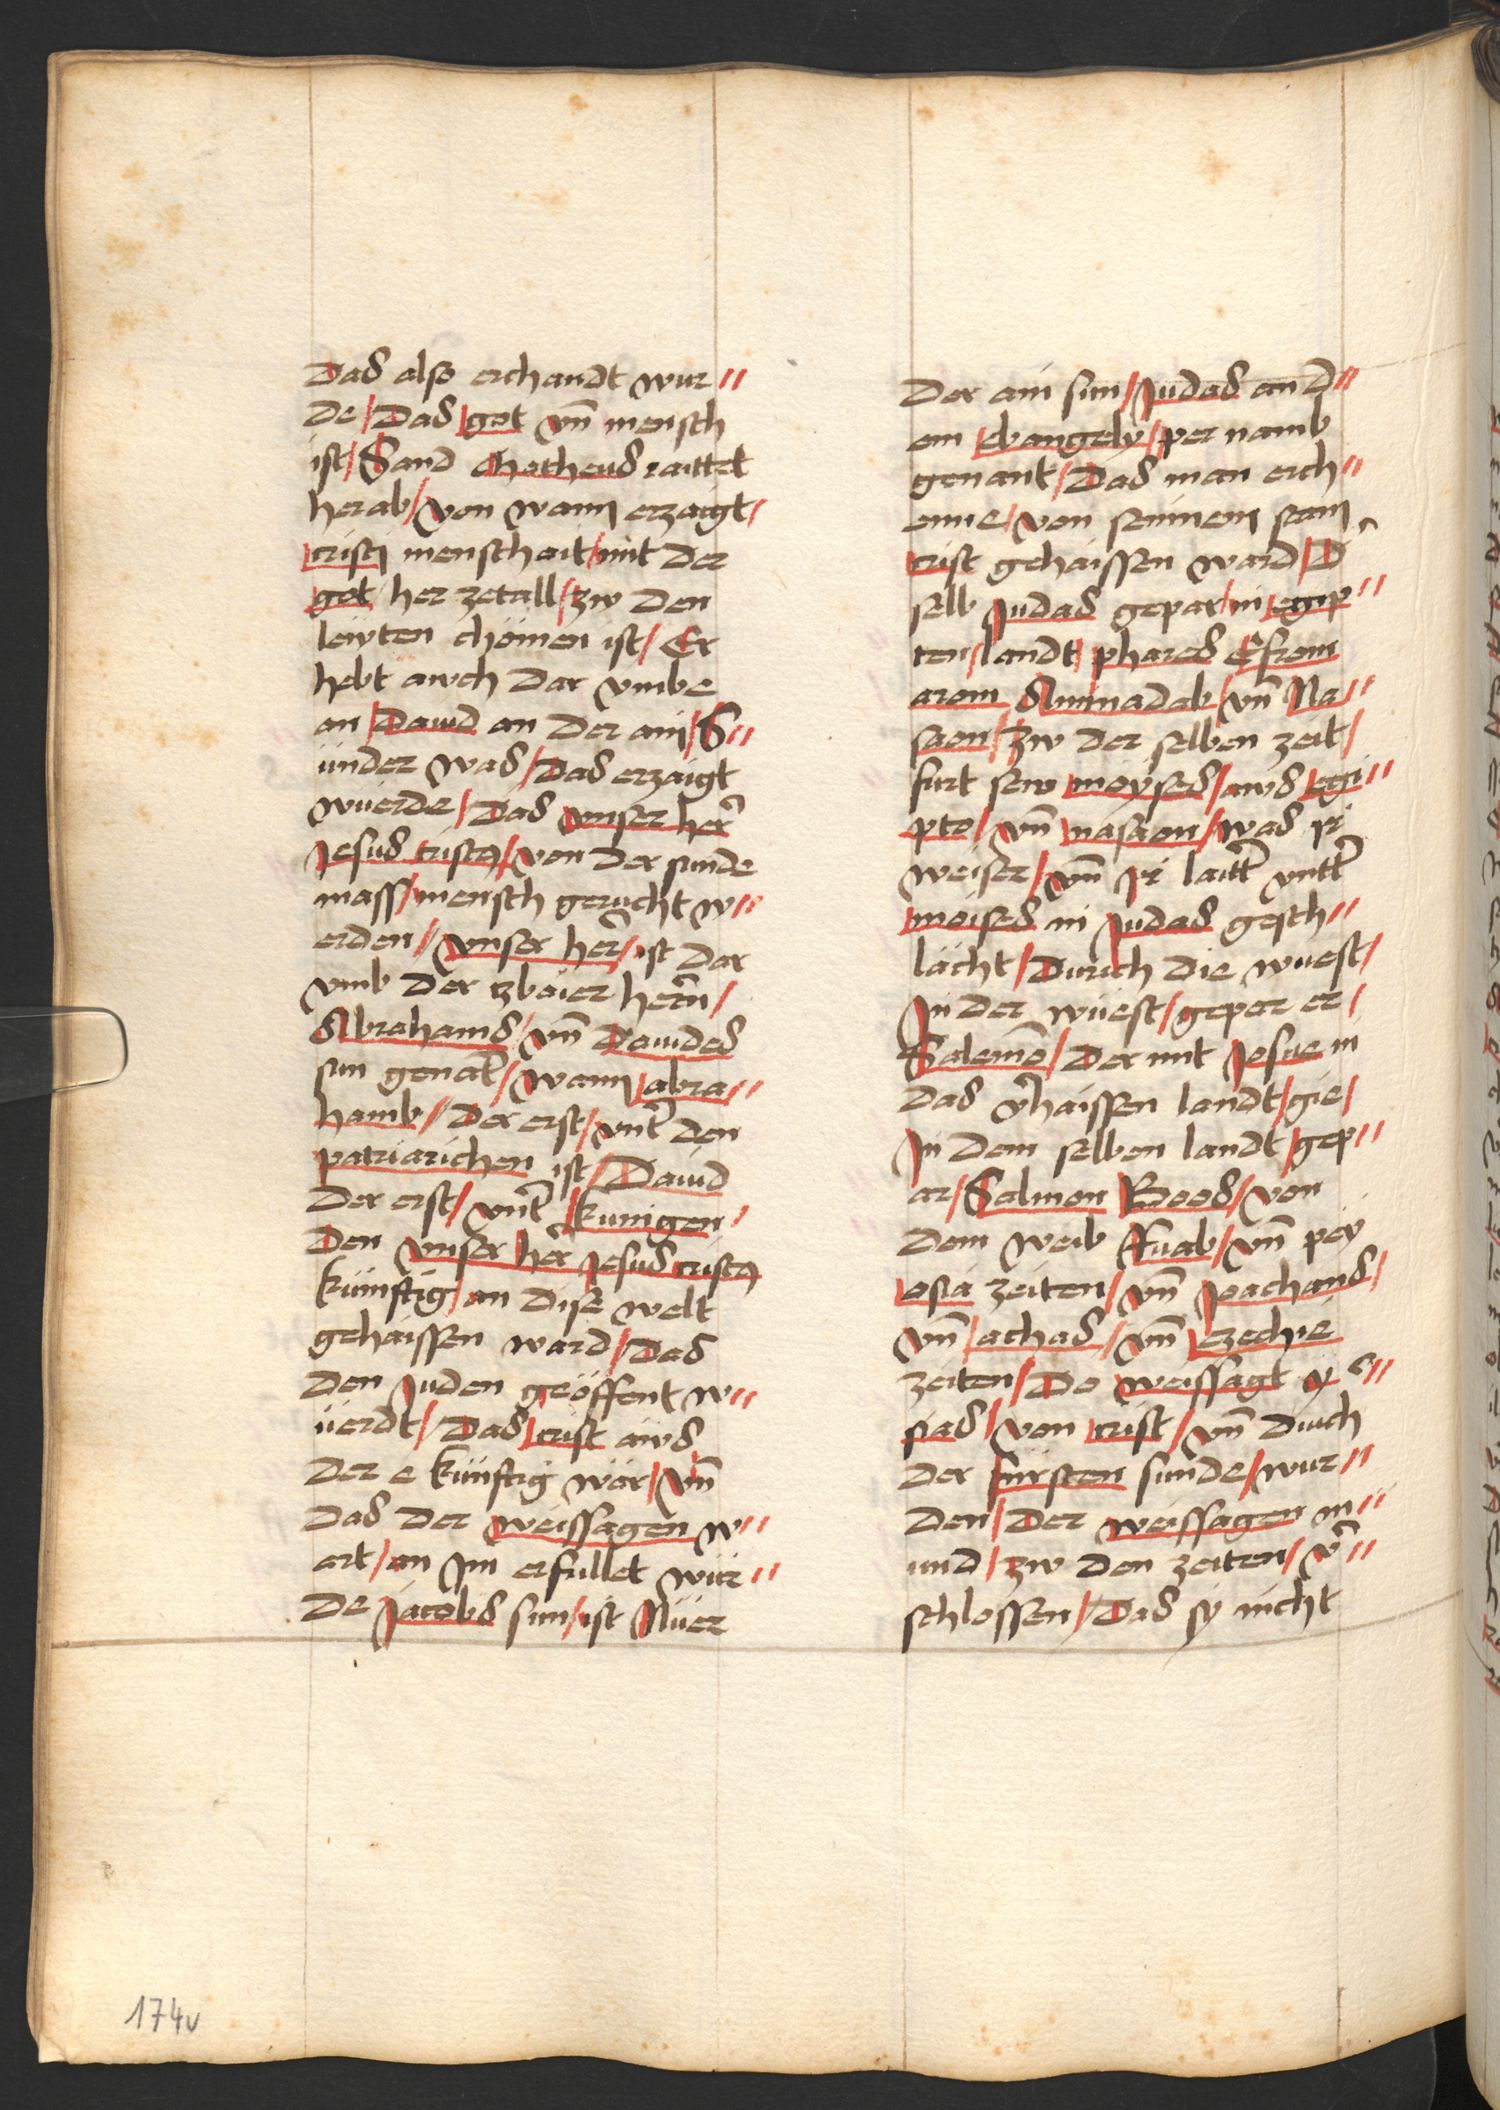 Das also erchandt wur //
de / Das got vn̄ mensch
ist / Sand Motheus raittet
herab / von wann erzaigt /
cristj menschait / mit der
got her zetall / zw den
lewten chömen ist / Er
hebt awch dar vmbe
an / Dauid an der ain / S //
ünder was / Das erzaigt
wuerde / Das vnser her̄
Jesus cristꝰ / von der sunde
mass / mensch gerucht w //
erden // vnser her̄ / ist dar
vmb der zbaier hern̄ /
Abrahams / vn̄ Dauides
sun genāt / wann abra //
hamb // Der erst / vnt̄ den
patriarichen ist / Dauid
der erst / vnt̄ kunigen /
Den vnser her̄ Jesus cristꝰ
künftig / an dise welt
gehaissen ward / Das
den Juden geöffent w //
üerdt / Das crist aws
der e künftig wär / vn̄
das der weissagen w //
art / an Jm erfullet wür //
de Jacobs sun / ist Nüer
Der ain sun / Judas an d //
em ebangely / per namb
genant / Das man erch //
enne / von seinem stam
crist gehaissen ward / D̄
selb Judas gepar / in egip //
ten / landt / phares Efrom
arom Aminadab / vn̄ Na //
saon / zw der selben zeit /
furt sew moyses / aws egi //
pto / vn̄ nasaon / was ir
weiser / vn̄ Jr laitt̄ vntt̄
moises in Judas gesch //
lächt / Durich die wuest /
Jn der wüest / gepar er /
Salemō / Der mit Josue in
das v̄haissen landt / gie /
Jn dem selben landt / gep //
ar / Salmon Boos / von
dem weib Raab / vn̄ pey
osia zeiten / vn̄ Joachans /
vn̄ achas / vn̄ ezechie
zeiten / Do weissagt ys //
sias / von crist / vn̄ durch
der fürsten sunde / wur //
den / Der weissagen m //
und / zw den zeiten / v̄ //
schlossen / Das sy nicht
174v